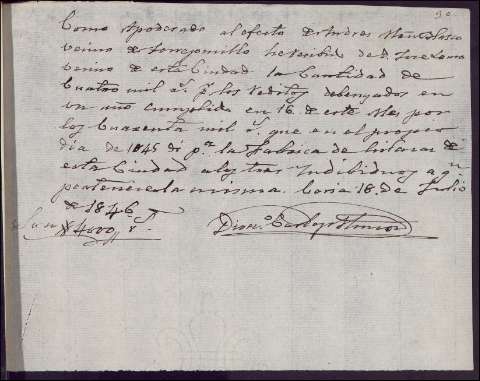 Como Apoderado al efecto de Andres Blasco
vecino de Torrejoncillo he recibido de D. Jose
vecino de esta Ciudad la Cantidad de
Cuatro mil r.s p.r los reditos debengados en
un año cumplido en 16 de este Mes por
los Cuarenta mil r.s que en el propio
dia de 1845 di p.a la Fabrica de hilados de
esta Ciudad a los tres Individuos a q.n
pertenece la misma. Coria 18 de Julio
de 1846
Son 4000 r.s
Dion.o Carlos